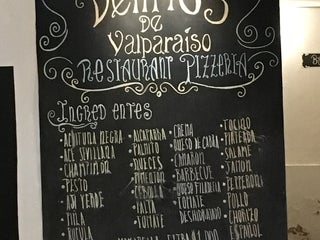 DE
Valparaíso
RESTAURANT PIZZERIA
INGREDIENTES
• ACEITUNA NEGRA
• ACE SEVILLANA
• CHAMPIÑON
• PESTO
• AJI VERDE
• PIÑA
• RUCULA
• ALCAPARRA
• PALMITO
• NUECES
• PIMENTON
• CEBOLLA
• PALTA
• TOMATE
• CREMA
• QUESO DE CABRA
• CAMARON
• BARBECUE
• QUESO FILADELFIA
• TOMATE
DESHIDRATADO
• TOCINO
• SALAME
• JAMON
• PEPPERONI
• POLLO
• CHORIZO
ESPAÑOL